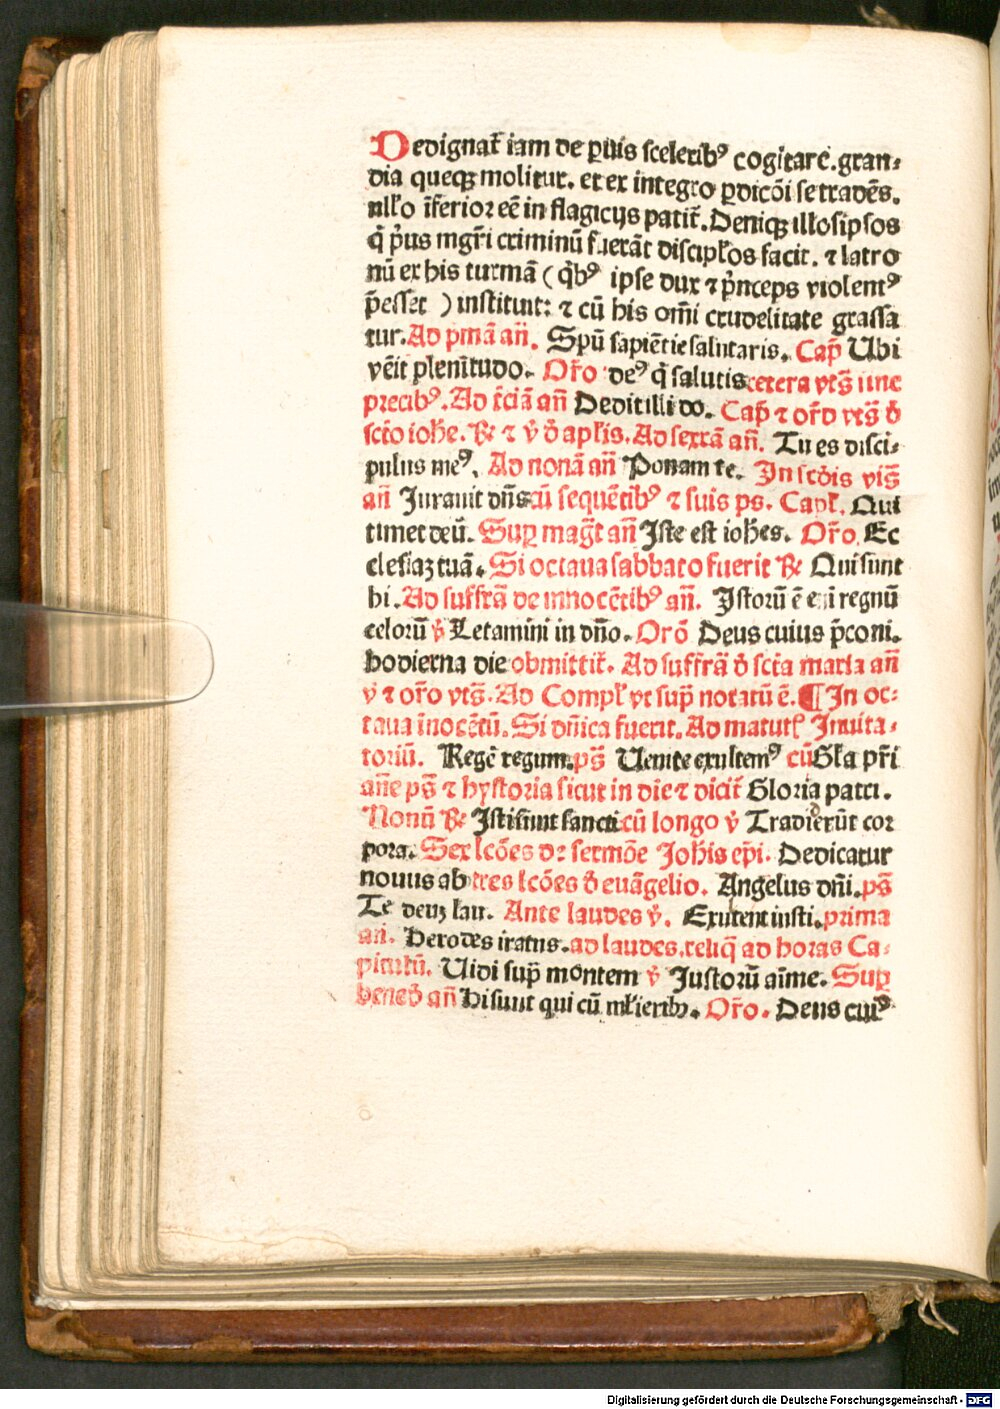 Dedignat̄ iam de p̱uis sceleribꝰ cogitare. gran⸗
dia queqꝫ molitur. et ex integro p̱dicōi se tradēs.
nłło īferior eē in flagicijs patit̄. Deniqꝫ illos ipsos
q̄ p̄us mgr̄i criminū fuerāt discipłos facit. ⁊ latro
nū ex his turmā ( q̄bꝰ ipse dux ⁊ p̄nceps violentꝰ
p̄esset ) instituit: ⁊ cū his om̄i crudelitate grassa
tur. Ad pmā añ. Spū sapiētie salutaris. Cap̄ Ubi
vēit plenitudo. Or̄o deꝰ q̄ salutis cetera vts̄ sine
precibꝰ. Ad t̄ciā añ Dedit illi do. Cap̄ ⁊ or̄o vts̄ d̄
scto iohe. ℟ ⁊ v̄ d̄ apłis. Ad sextā añ. Tu es disci⸗
pulus meꝰ. Ad nonā añ Ponam te. In scd̄is vis̄
añ Jurauit dn̄s cū sequētibꝰ ⁊ suis ps. Capł. Qui
timet deū. Sup̱ mag̅t añ Iste est iohes. Or̄o. Ec
clesiaꝫ tuā. Si octaua sabbato fuerit ℟ Qui sunt
hi. Ad suffrā de innocētibꝰ añ. Istorū ē eni regnū
celorū v̄ Letamini in dn̄o. Orō Deus cuius p̄coni.
hodierna die obmittit̄. Ad suffrā d̄ scta maria añ
v̄ ⁊ or̄o vts̄. Ad Compł vt sup̄ notatū ē. ¶ In oc⸗
taua īnocētū. Si dn̄ica fuerit. Ad matutł Inuita⸗
toriū. Regē regum. ps̄ Uenite exultemꝰ cū Gła pr̄i
añe ps̄ ⁊ hystoria sicut in die ⁊ dicit̄ Gloria patri.
Nonū ℟ Isti sunt sancti cū longo v̄ Tradiderūt cor
pora. Sex lcōes de sermōe Joh̄is ep̄i. Dedicatur
nouus ab tres lcōes d̄ euāgelio. Angelus dn̄i. ps̄
Te deuꝫ lau. Ante laudes v̄. Exultent iusti. prima
añ. Herodes iratus. ad laudes. reliq̄ ad horas Ca⸗
pitulū. Uidi sup̄ montem v̄ Justorū aīme. Sup̱
bened̄ añ Hi sunt qui cū młieribꝫ. Or̄o. Deus cuiꝰ
Digitalisierung gefördert durch die Deutsche Forschungsgemeinschaft - DFG